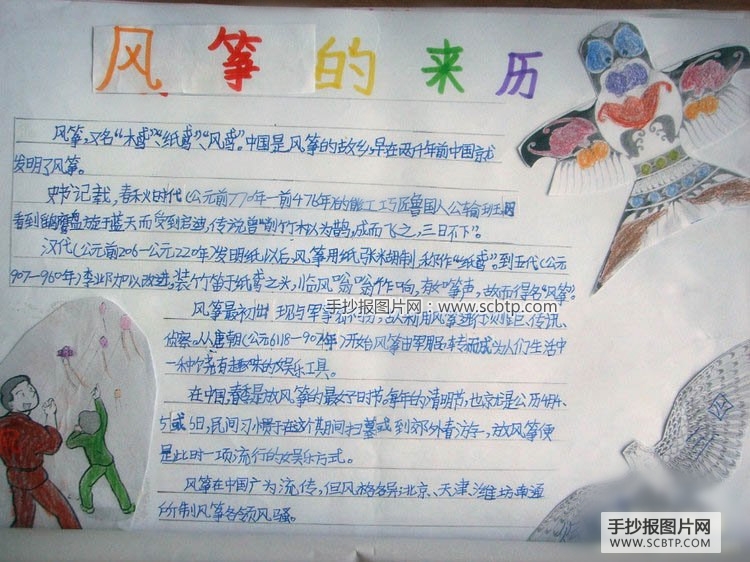 风筝的来历
风筝,又名“木鸢”、“纸鸢”、“风鸢”。中国是风筝的故乡,早在两千年前中国就
发明了风筝。
史书记载,春秋时代(公元前770年—前476年)的能工巧匠鲁国人公输班
看到鹞鹰盘旋于蓝天而受到启迪,传说曾“削竹木以为鹊,成而飞之,三日不下”。
汉代(公元前206-公元220年)发明纸以后,风筝用纸张糊制,称作“纸鸢”。到五代(公元
907—960年)李邺加以改进,装竹笛于纸鸢之头,临风嗡嗡作响,有如筝声,故而得名“风筝”。
手抄报图片网:www.scbtp.com
风筝最初出现与军事 利用风筝进行 传讯、
侦察。从唐朝(公元618-907年)开始风筝由军用 转而成为人们生活中
一种饶有趣味的娱乐工具。
在中国,春季是放风筝的最好时节。每年的清明节,也就是公历4月4、
5或6日,民间习惯于在这个期间扫墓或到郊外春游,放风筝便
是此时一项流行的娱乐方式。
风筝在中国广为流传,但风格各异,北京、天津、潍坊、南通
所制风筝各领风骚。
手抄报图片网
WWW.SCBTP.COM